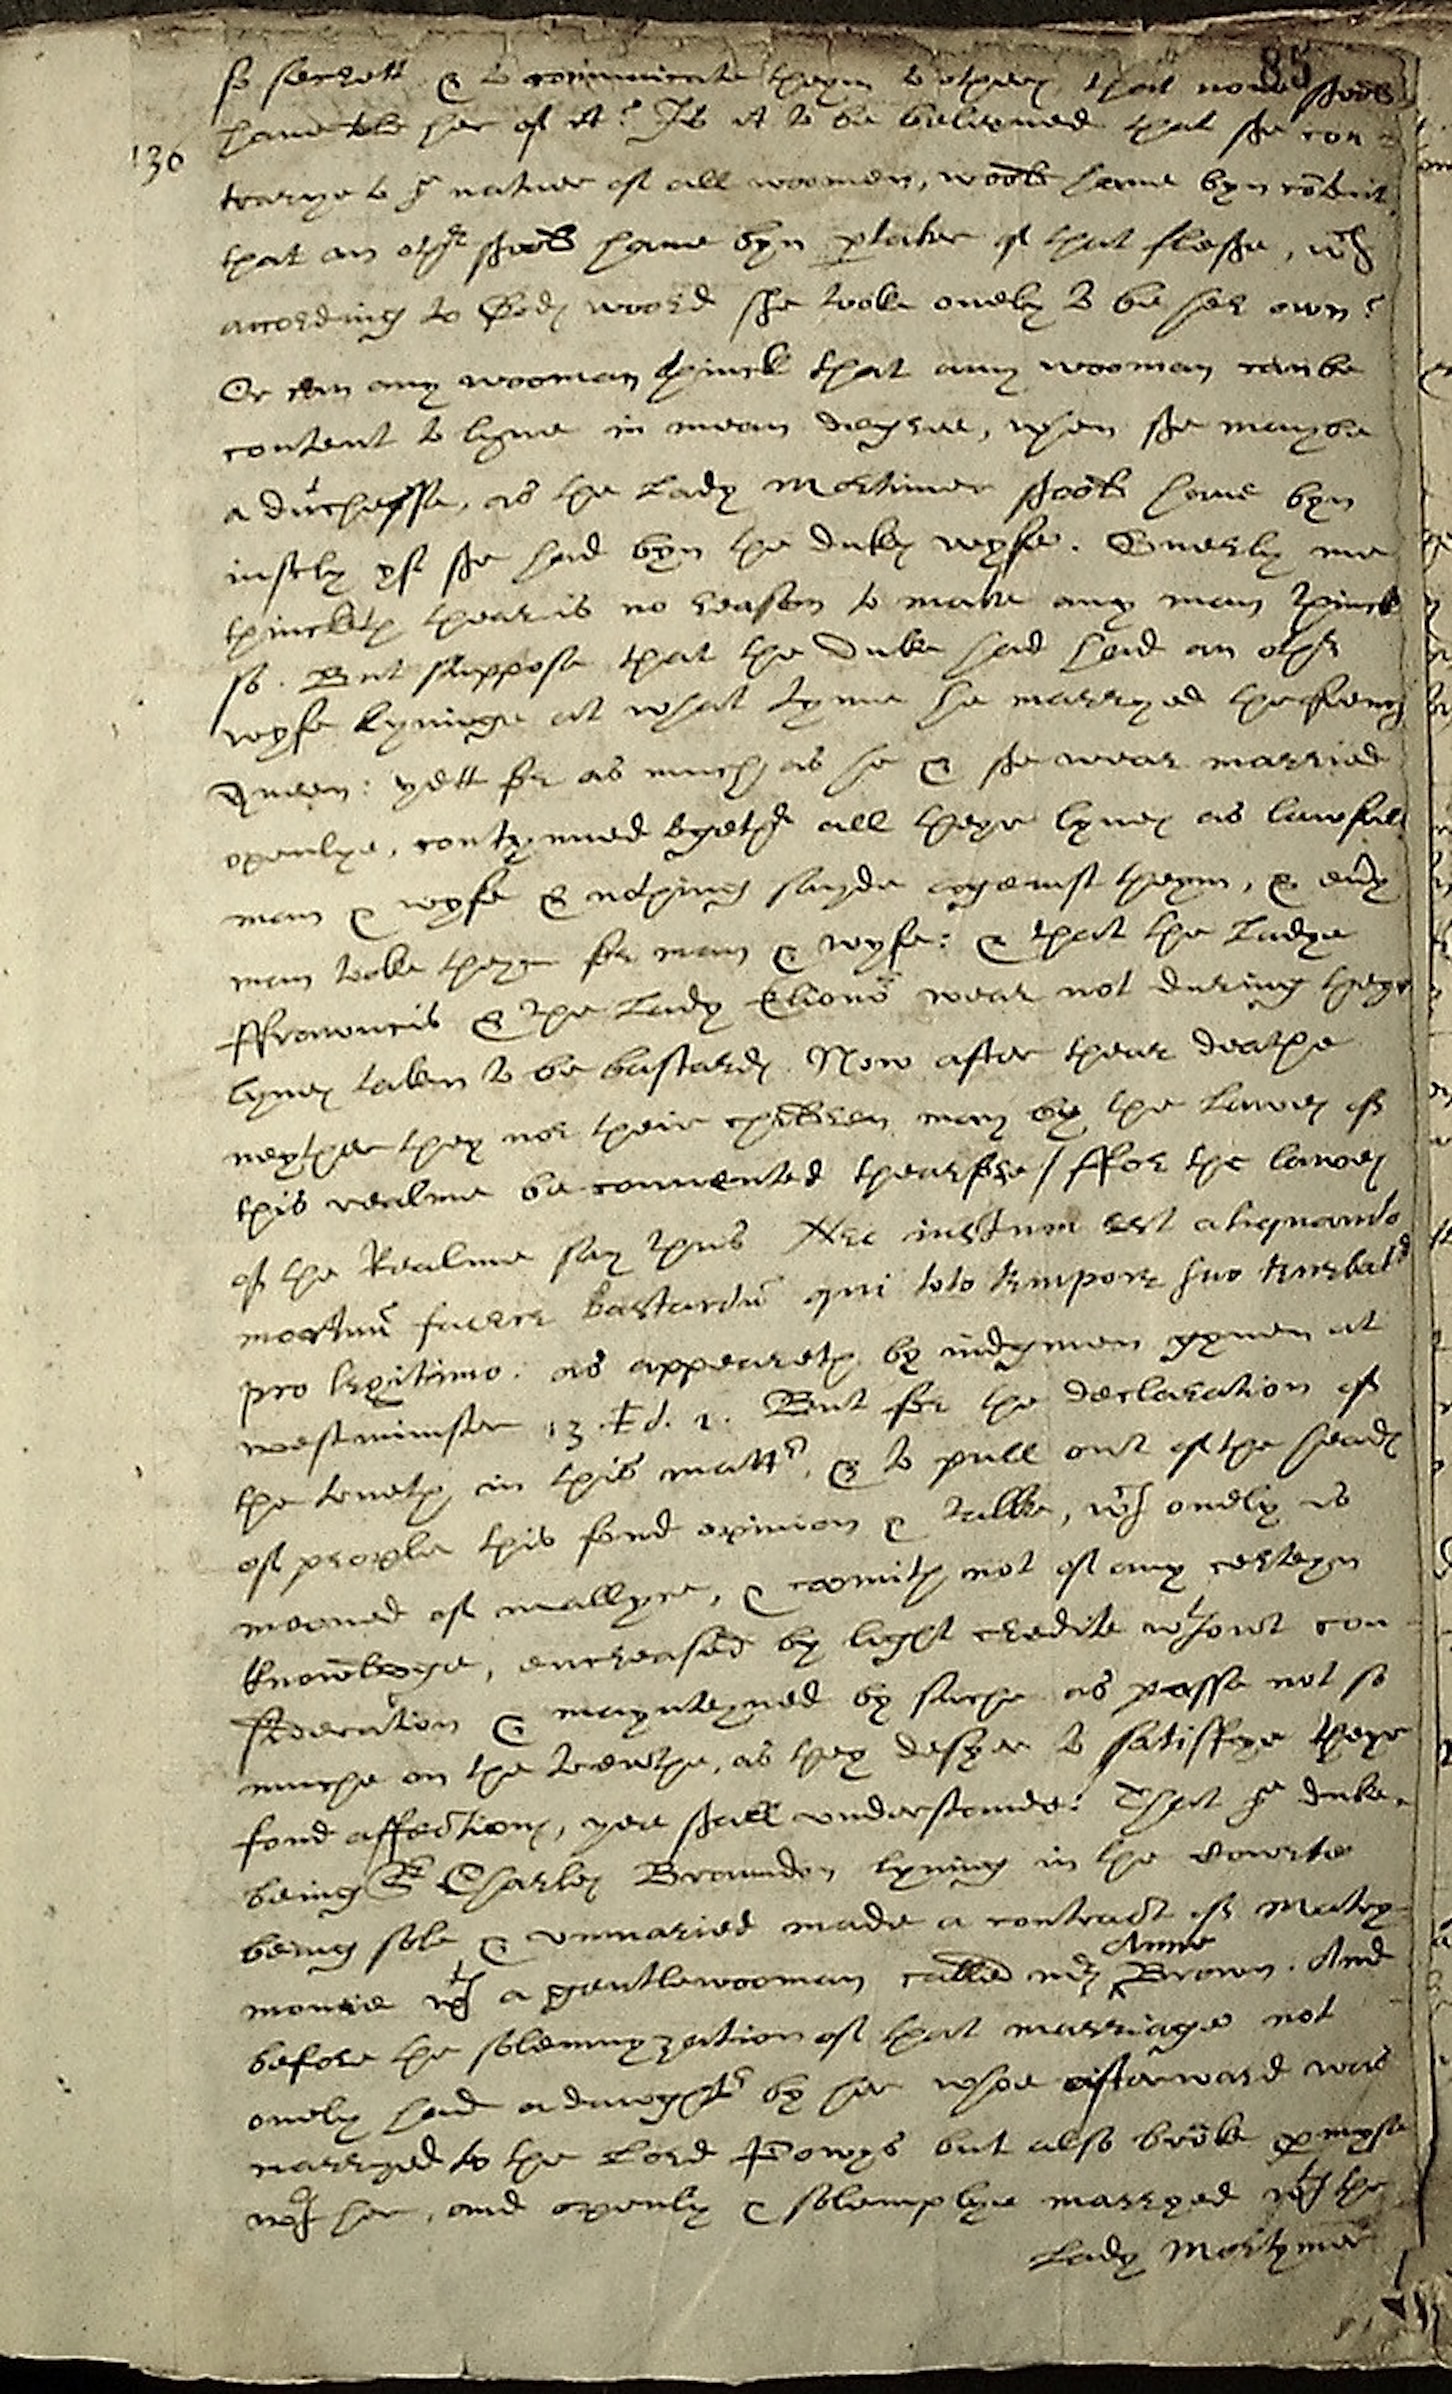 85
so secrett & to communicate theym to other, that none shold
have tolde her of it? Is it to be beleeved that she con-
136
trarye to ye nature of all woomen, woold have byn cōtent,
that an othr shoold have byn ptaker of that fleshe, wch
according to Gods woord she tooke onely to be her own?
Or can any wooman thinck that any wooman can be
content to lyve in mean degree, when she may be
a dutchesse, as the Lady Mortimer shoold have byn
iustly yf she had byn the dukes wyfe. Suerly me
thincketh thear is no reason to make any man thinck
so. But suppose that the Duke had had an othr
wyfe lyvinge at what tyme he marryed the french
Queen: yett for as much as he & she wear married
openlye, contynued togethr all theyr lyves as lawfull
man & wyfe & nothing sayde against theym, & evry
man tooke theym for man & wyfe: & that the Ladye
ffrauncis & the Lady Elionor wear not during theyr
lyves taken to be bastards. Now after thear deathe
neyther they nor their children may by the lawes of
this realme be convented thearfore / ffor the lawes
of the Realme say thus Nec iustum est aliquando
mortuū facere bastardū qui toto tempore suo tenebatr
pro legitimo. as appeareth by iudgmen gyven at
westminster 13. Ed. 1. But for the declaration of
the trueth in this mattr, & to pull out of the heads
of people this fond opinion & talke, wch onely is
mooved of mallyce, & coomith not of any certeyn
knowledge, encreased by light credite wthowt con-
sideration & maynteyned by suche as passe not so
muche on the trewthe, as they desyer to satisffye theyr
fond affections, yee shall understande: That ye duke
being Sr Charles Brandon lyving in the cowrte
being sole & unmaried made a contract of Matry-
monie wth a gentlewooman called mrs Anne Brown. And
before the solemnyzation of that marriage not
onely had a dawghtr by her whoe afterward was
marryed to the Lord Powys but also broke pmyse
wth her, and openly & solemplye marryed wth the
Lady Mortymer